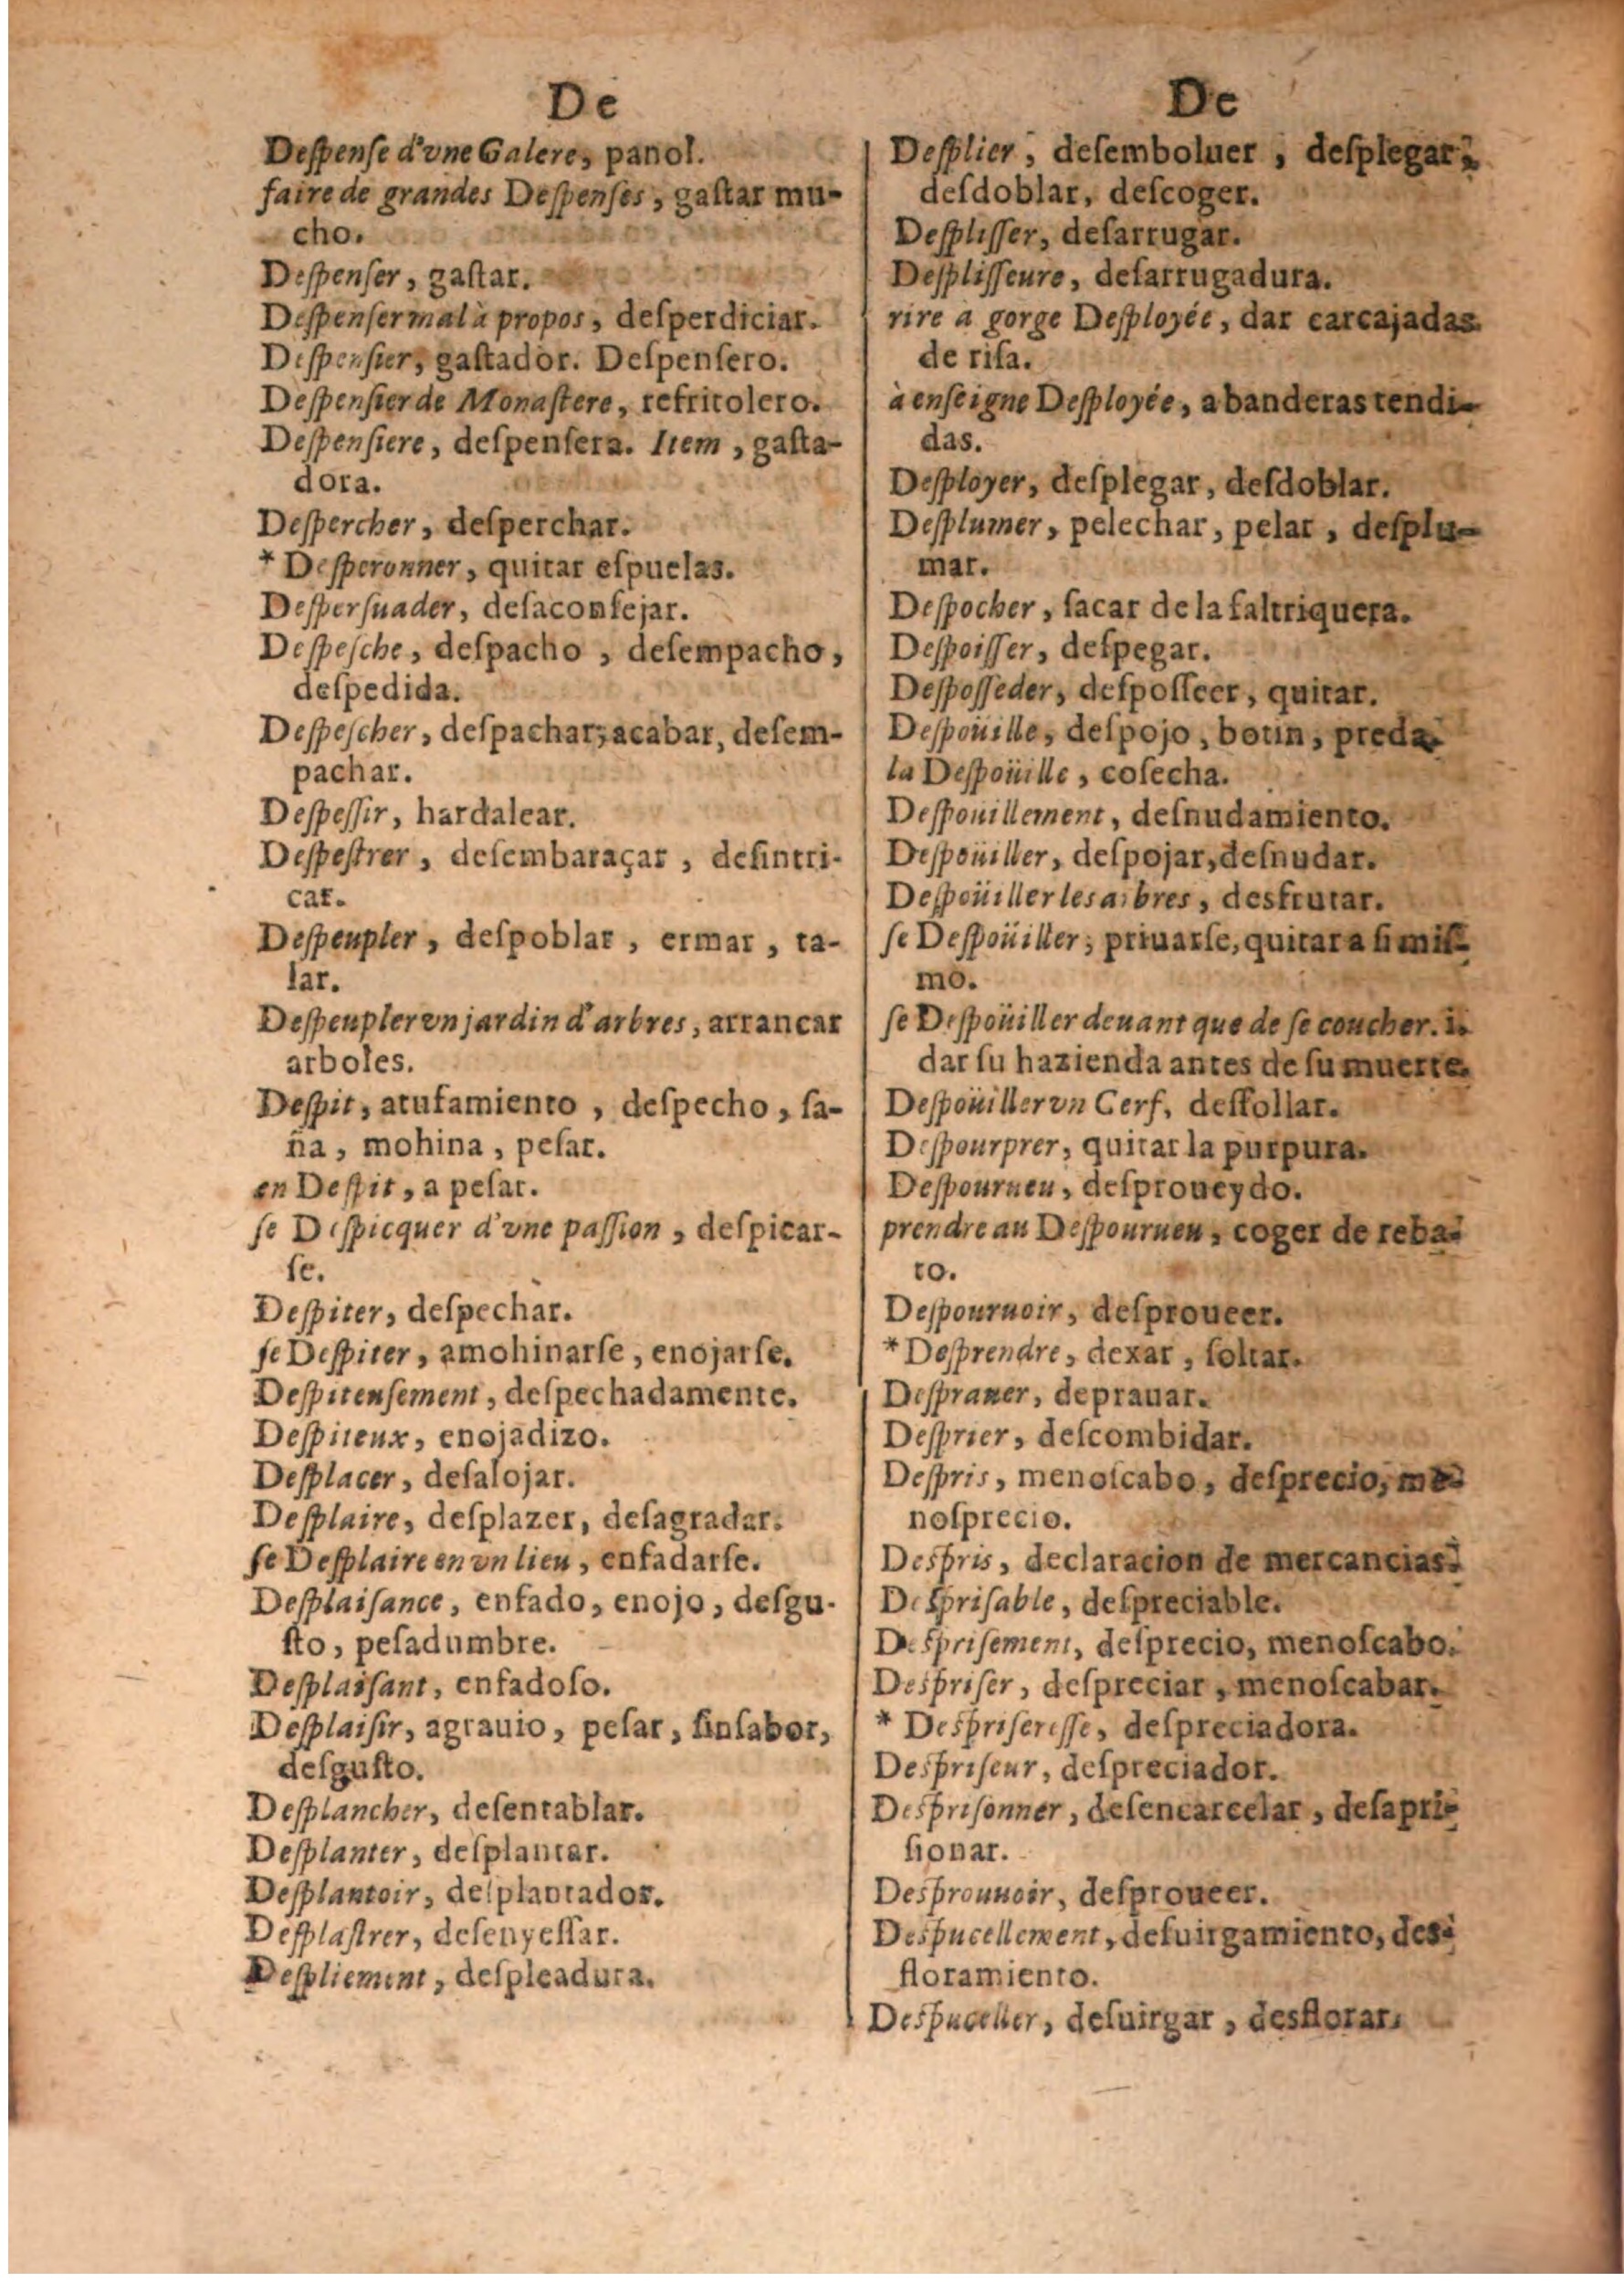 De
Deſpenſe d'vne Galere, panol.
faire de grandes Deſpenſes, gaſtar mu-
cho.
Deſpenſer, gaſtar.
Deſpenſer mal à propos, deſperdiciar.
Deſpenſier, gaſtador. Deſpenſero.
Deſpenſier de Monaſtere, refritolero.
Deſpenſiere, deſpenſera. Item, gaſta-
dora.
Deſpercher, deſperchar.
* Deſperonner, quitar eſpuelas.
Deſperſuader, deſaconſejar.
Deſpeſche, deſpacho, deſempacho,
deſpedida.
Deſpeſcher, deſpachar, acabar, deſem-
pachar.
Deſpeſſir, hardalear.
Deſpeſtrer, deſembaraçar, deſintri-
car.
Deſpeupler, deſpoblar, ermar, ta-
lar.
Deſpeupler vn jardin d'arbres, arrancar
arboles.
Deſpit, atufamiento, deſpecho, ſa-
ña, mohina, peſar.
en Deſpit, a peſar.
ſe Deſpicquer d'vne paſſion, deſpicar-
ſe.
Deſpiter, deſpechar.
ſe Deſpiter, amohinarſe, enojarſe.
Deſpiteuſement, deſpechadamente.
Deſpiteux, enojadizo.
Deſplacer, deſalojar.
Deſplaire, deſplazer, deſagradar.
ſe Deſplaire en vn lieu, enfadarſe.
Deſplaiſance, enfado, enojo, deſgu-
ſto, peſadumbre.
Deſplaiſant, enfadoſo.
Deſplaiſir, agrauio, peſar, ſinſabor,
deſguſto.
Deſplancher, deſentablar.
Deſplanter, deſplantar.
Deſplantoir, deſplantador.
Deſplaſtrer, deſenyeſſar.
Deſpliement, deſpleadura.
De
Deſplier, deſemboluer, deſplegar,
deſdoblar, deſcoger.
Deſpliſſer, deſarrugar.
Deſpliſſeure, deſarrugadura.
rire a gorge Deſployée, dar carcajadas
de riſa.
à enſeigne Deſployée, a banderas tendi-
das.
Deſployer, deſplegar, deſdoblar.
Deſplumer, pelechar, pelar, deſplu-
mar.
Deſpocher, ſacar de la faltriquera.
Deſpoiſſer, deſpegar.
Deſpoſſeder, deſpoſſeer, quitar.
Deſpoüille, deſpojo, botin, preda.
la Deſpoüille, coſecha.
Deſpouillement, deſnudamiento.
Deſpoüiller, deſpojar, deſnudar.
Deſpoüiller les arbres, desfrutar.
ſe Deſpoüiller, priuarſe, quitar a ſi miſ-
mo.
ſe Deſpoüiller deuant que de ſe coucher. i.
dar ſu hazienda antes de ſu muerte.
Deſpoüiller vn Cerf, deſſollar.
Deſpourprer, quitar la purpura.
Deſpourueu, deſproueydo.
prendre au Deſpourueu, coger de reba-
to.
Deſpouruoir, deſproueer.
* Deſprendre, dexar, ſoltar.
Deſprauer, deprauar.
Deſprier, deſcombidar.
Deſpris, menoſcabo, deſprecio, me-
noſprecio.
Deſpris, declaracion de mercancias.
Deſpriſable, deſpreciable.
Deſpriſement, deſprecio, menoſcabo.
Deſpriſer, deſpreciar, menoſcabar.
* Deſpriſereſſe, deſpreciadora.
Deſpriſeur, deſpreciador.
Deſpriſonner, deſencarcelar, deſapri-
ſionar.
Deſprouuoir, deſproueer.
Deſpucellement, deſuirgamiento, des-
floramiento.
Deſpuceller, deſuirgar, desflorar.